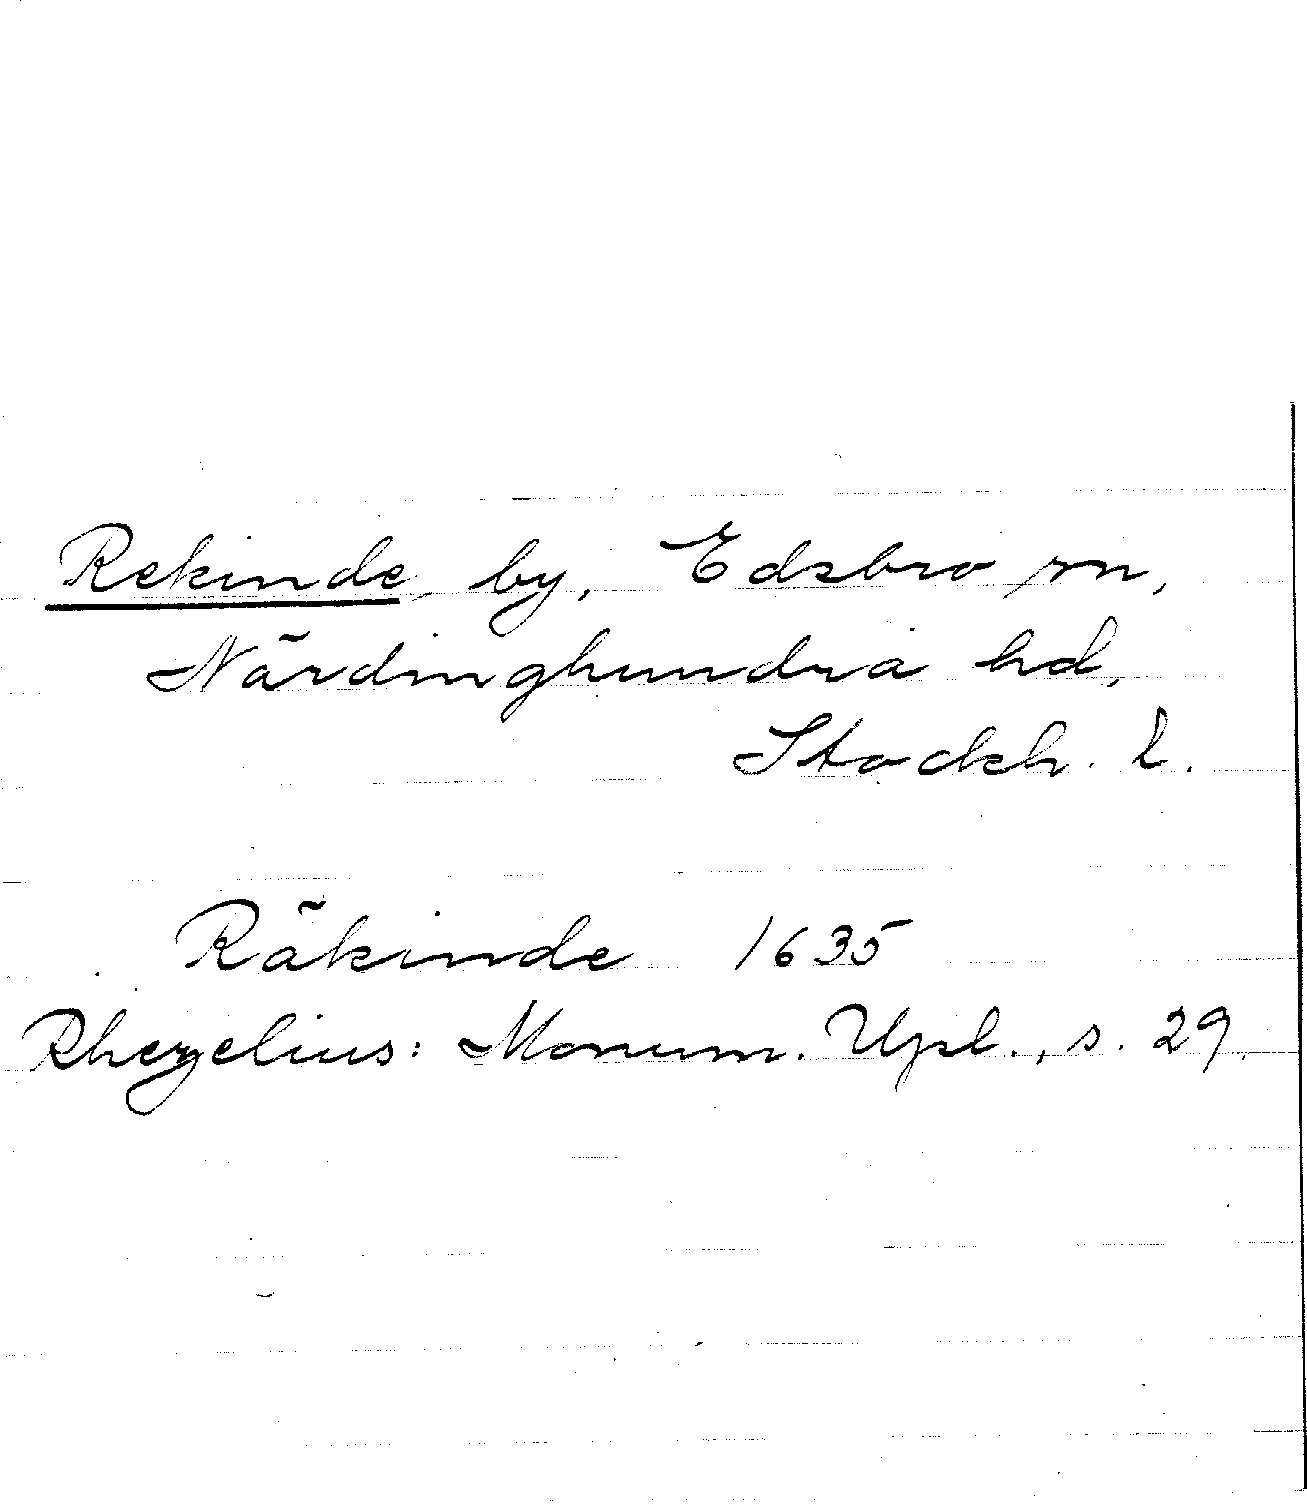 Rekinde, by, Edsbro sn,
Närdinghundra hd,
Stockh. l.
Räkinde 1635
Rhezelius: Monum. Upl., s. 29.